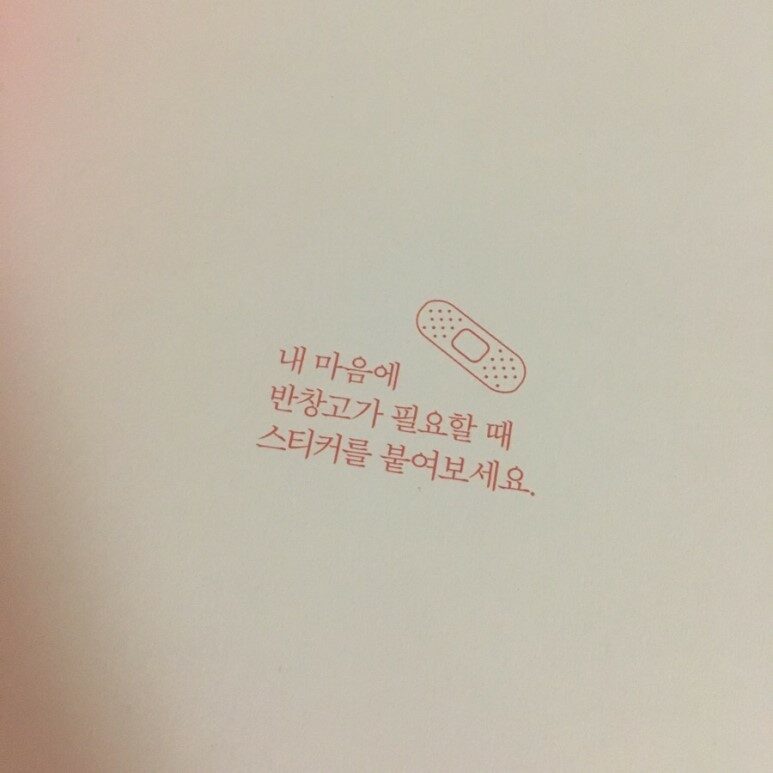 내 마음에
반창고가 필요할 때
스티커를 붙여보세요.